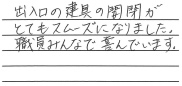 出入口の建具の開閉が
とてもスムーズになりました。
職員みんなで喜んでいます。